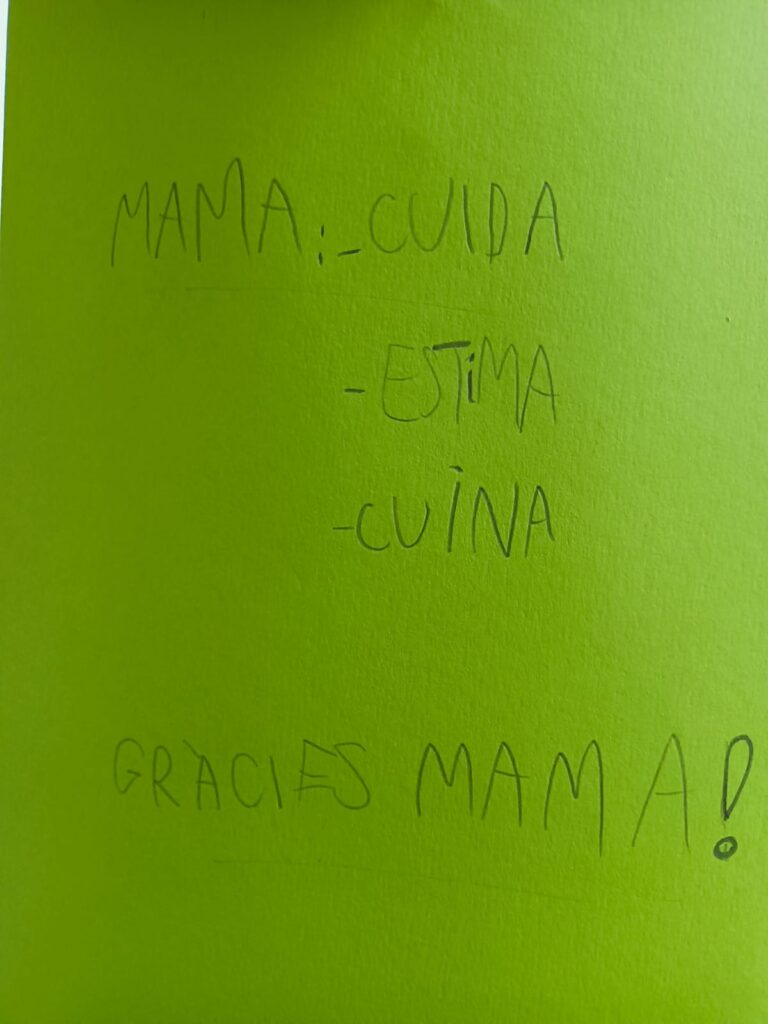 MAMA:-CUIDA
-ESTiMA
-CUiNA
GRÀCIES MAMA!